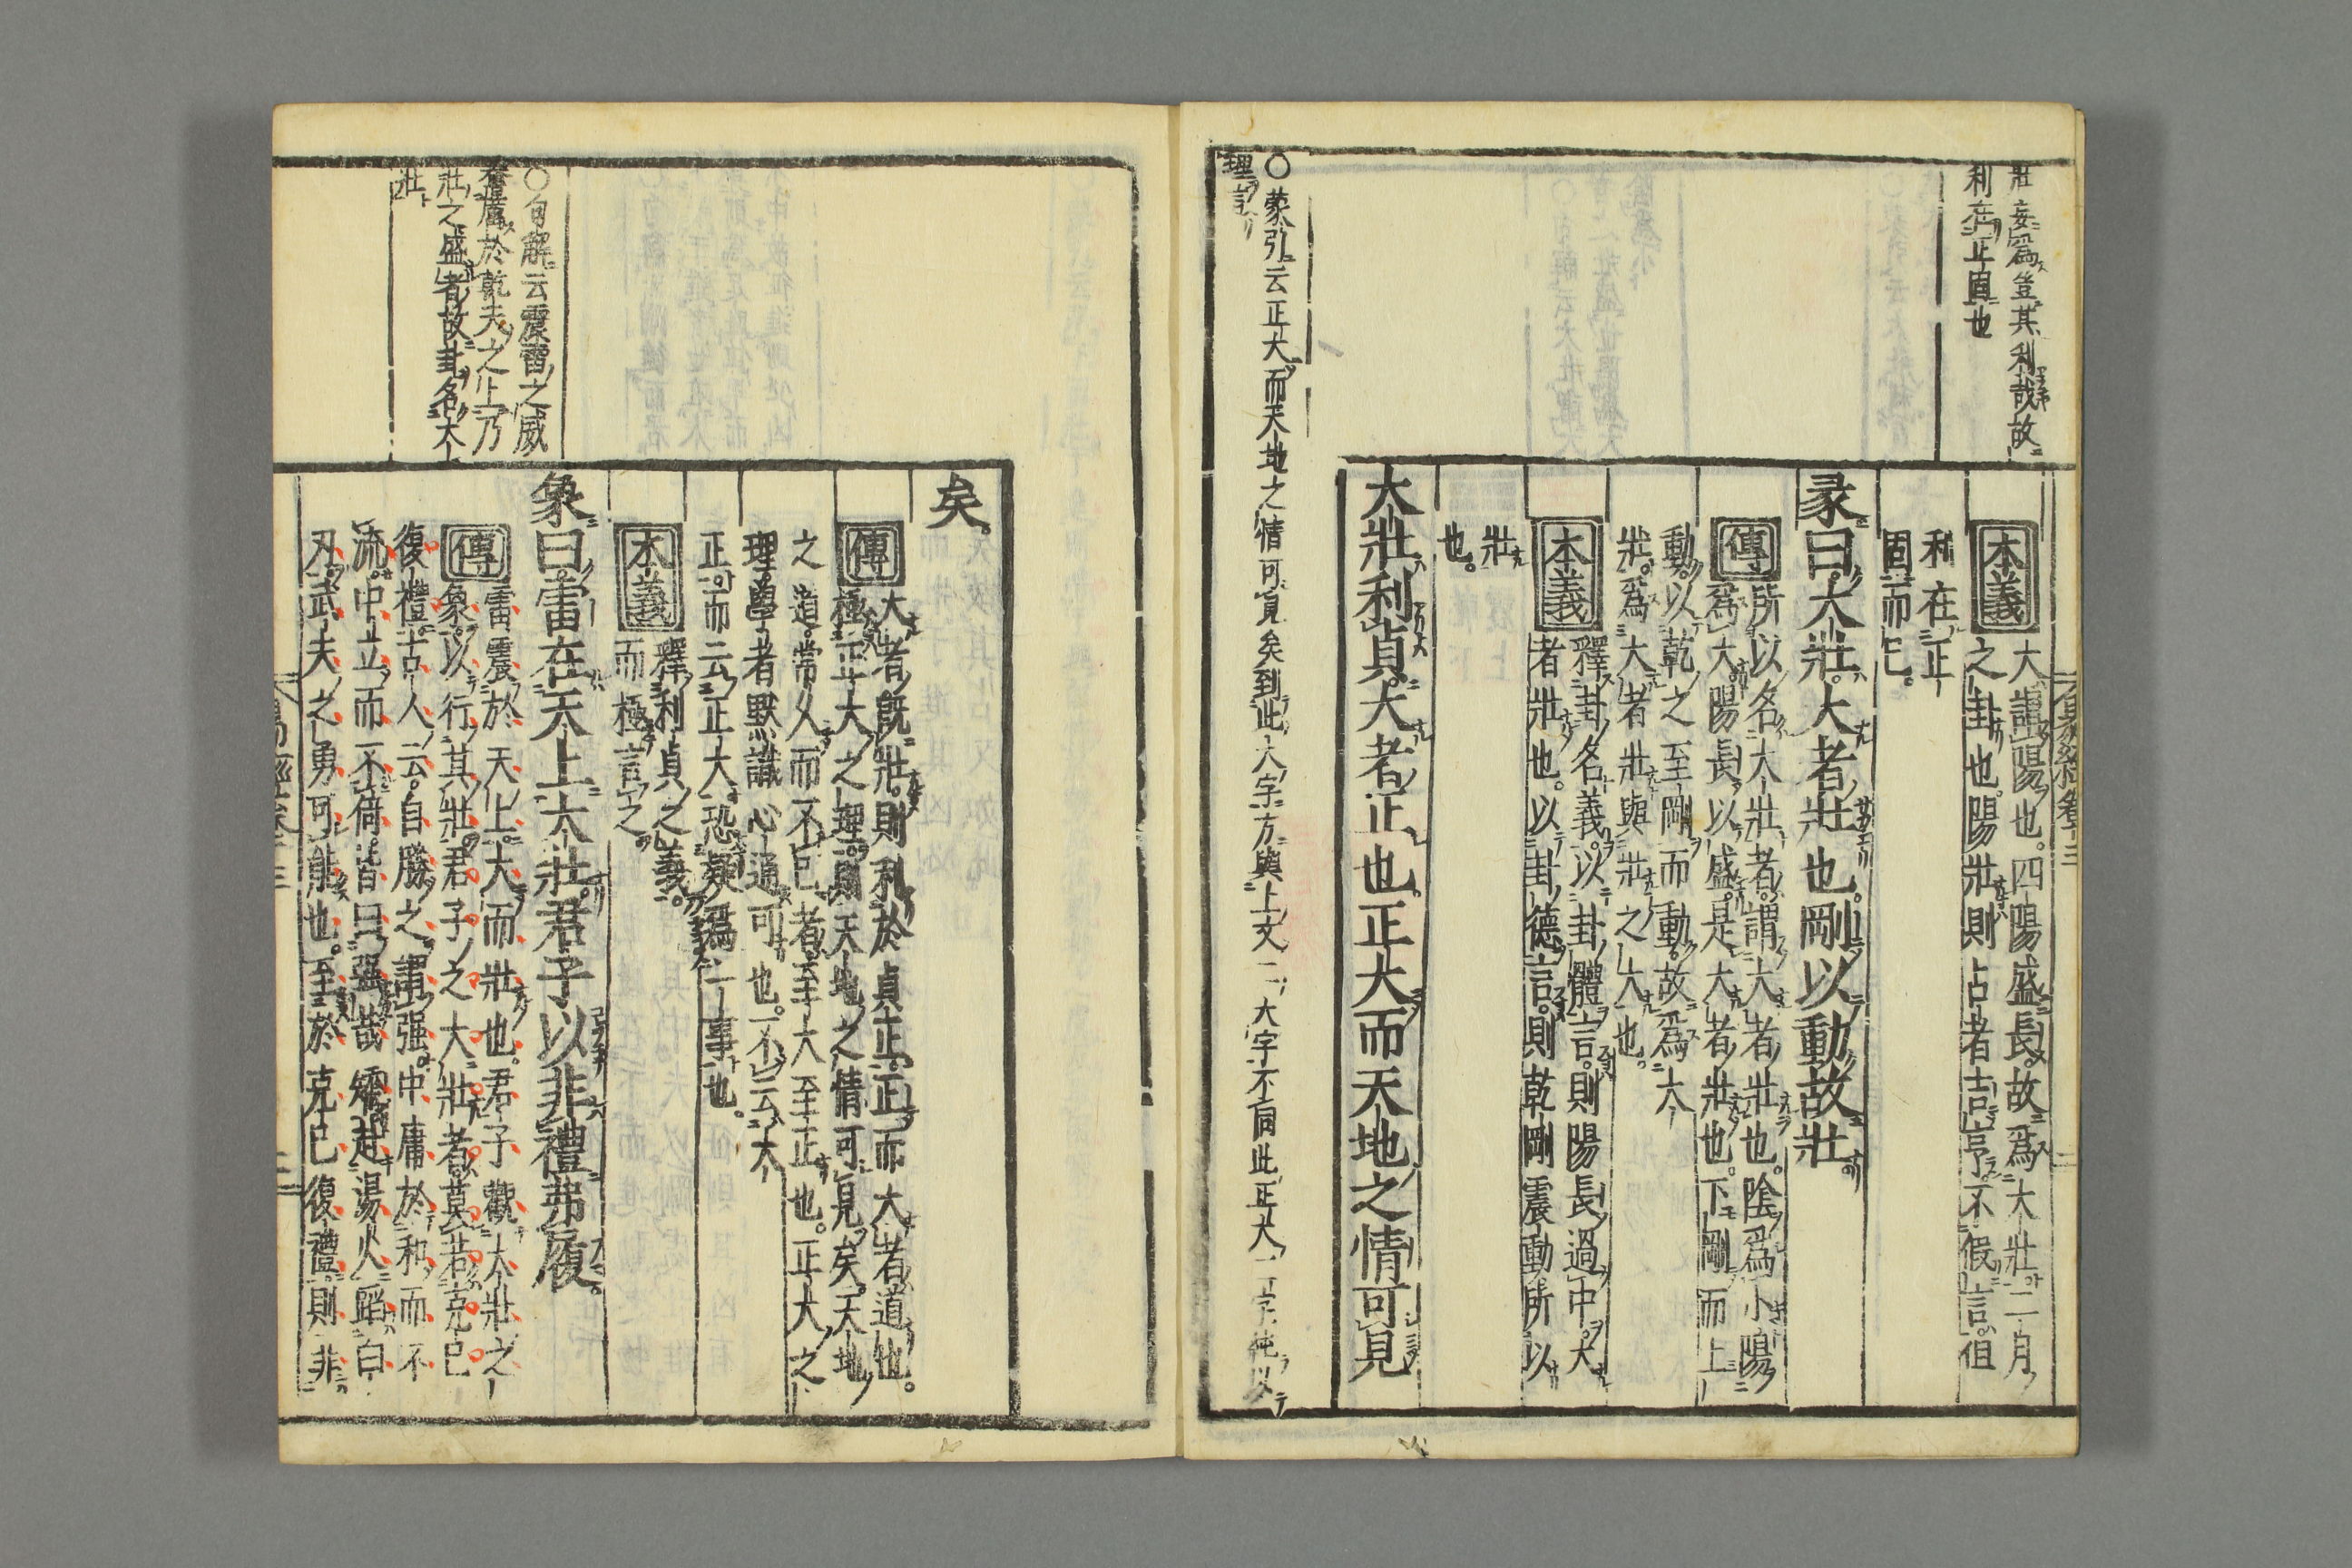 壯妄爲豈其利哉故
利在正固也
本義
大謂陽也。四陽盛長。故爲大壯。二月
之卦也。陽壯則占者吉亨。不假言。但
利在正
固而已。
彖曰。大壯。大者壯也。剛以動故壯。
傳
所以名大壯者。謂大者壯也。陰爲小陽
爲大。陽長以盛。是大者壯也。下剛而上
動。以乾之至剛而動。故爲大
壯。爲大者壯與壯之大也。
本義
釋卦名義。以卦體言。則陽長過中。大
者壯也。以卦德言。則乾剛震動所以
壯
也。
大壯利貞。大者正也。正大而天地之情可見
○蒙引云正大而天地之情可見矣到此大字方與上文二大字不同此正大二字純以
理言
矣。
傳
大者既壯。則利於貞正。正而大者道也。
極正大之理。則天地之情可見矣。天地
之道。常久而不已者。至大至正也。正大之
理學者默識心通可也。不云大
正。而云正大。恐疑爲一事也。
本義
釋利貞之義。
而極言之。
○句解云震雷之威
奮厲於乾天之上乃
壯之盛者故卦名大
壯
象曰雷在天上大壯君子以非禮弗履。
傳
雷震於天上。大而壯也。君子觀大壯之
象。以行其壯。君子之大壯者。莫若克己
復禮。古人云。自勝之謂强。中庸於和而不
流。中立而不倚。皆曰强哉矯。赴湯火蹈白
刃。武夫之勇可能也。至於克己復禮。則非